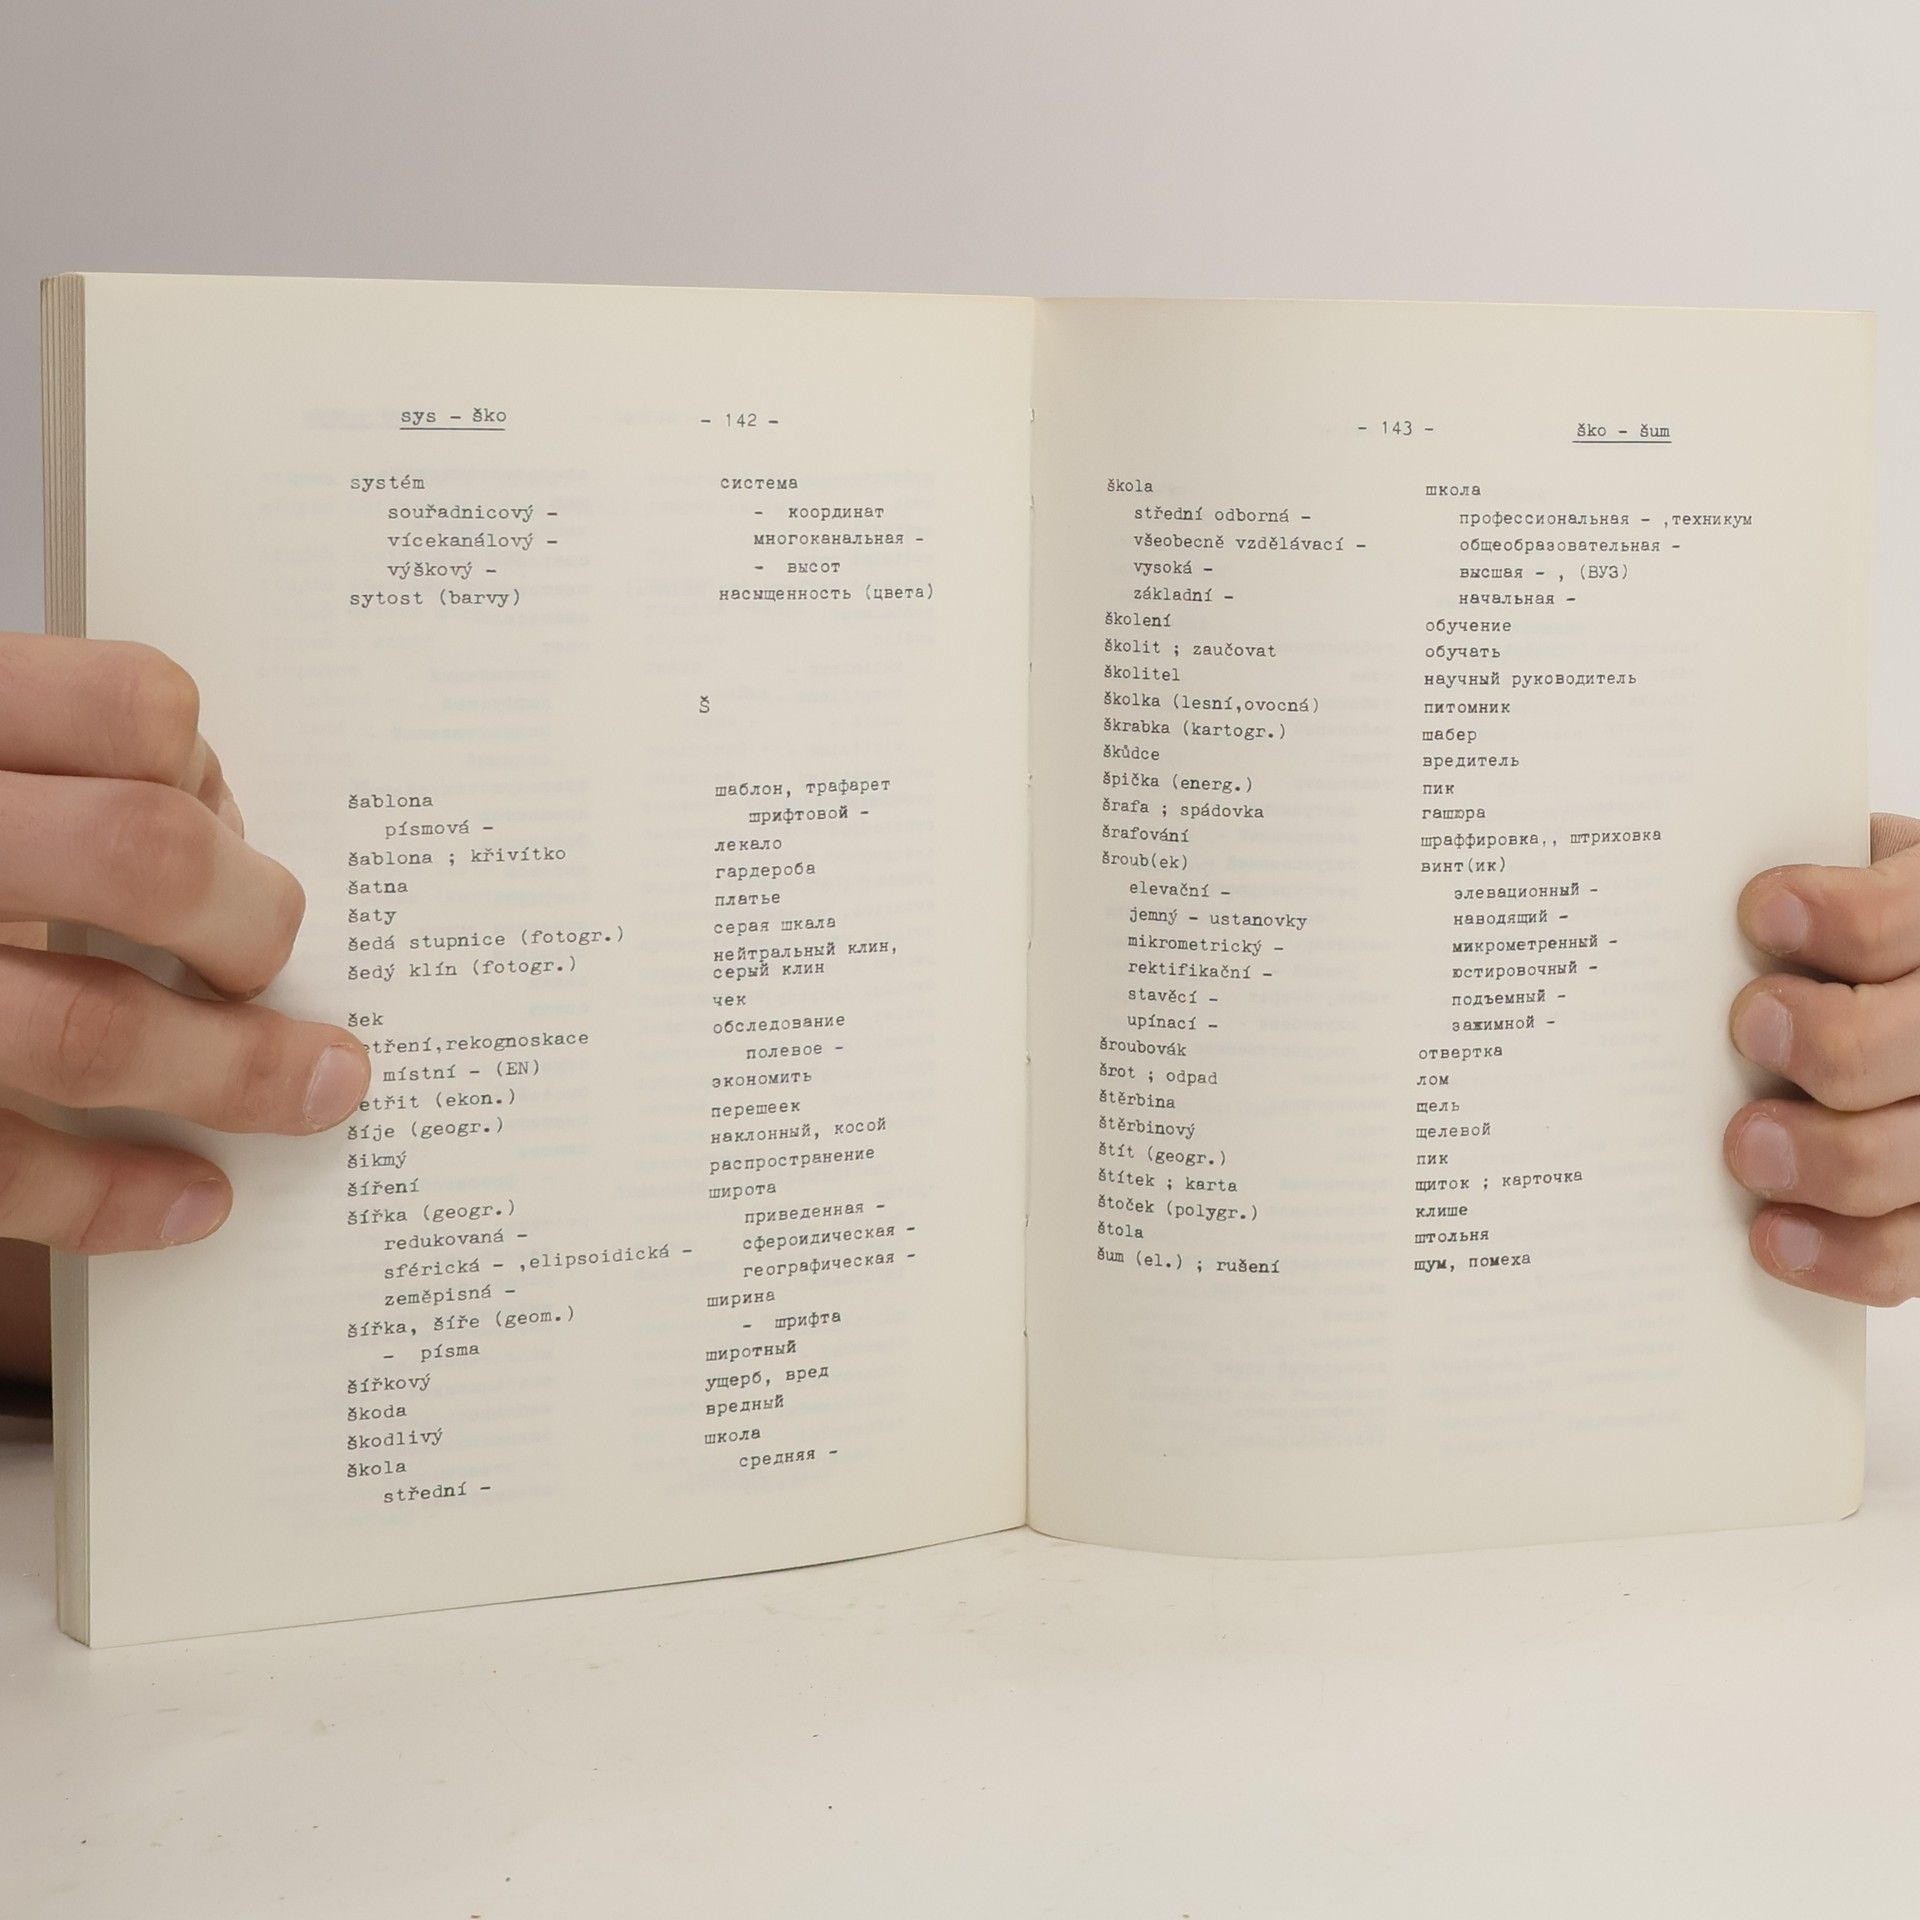 sys - ško - 142 -
systém система
souřadnicový - - координат
vícekanálový - многоканальная -
výškový - - высот
sytost (barvy) насыщенность (цвета)
Š
šablona шаблон, трафарет
písmová - шрифтовой -
šablona ; křivítko лекало
šatna гардероба
šaty платье
šedá stupnice (fotogr.) серая шкала
šedý klín (fotogr.) нейтральный клин,
серый клин
šek чек
etření,rekognoskace обследование
místní - (EN) полевое -
etřit (ekon.) экономить
šíje (geogr.) перешеек
šikmý наклонный, косой
šíření распространение
šířka (geogr.) широта
redukovaná - приведенная -
sférická - ,elipsoidická - сфероидическая -
zeměpisná - географическая -
šířka, šíře (geom.) ширина
- písma - шрифта
šířkový широтный
škoda ущерб, вред
škodlivý вредный
škola школа
střední - средняя -
- 143 - ško - šum
škola школа
střední odborná - профессиональная - ,техникум
všeobecně vzdělávací - общеобразовательная -
vysoká - высшая - , (ВУЗ)
základní - начальная -
školení обучение
školit ; zaučovat обучать
školitel научный руководитель
školka (lesní,ovocná) питомник
škrabka (kartogr.) шабер
škůdce вредитель
špička (energ.) пик
šrafa ; spádovka гашюра
šrafování шраффировка,, штриховка
šroub(ek) винт(ик)
elevační - элевационный -
jemný - ustanovky наводящий -
mikrometrický - микрометренный -
rektifikační - юстировочный -
stavěcí - подъемный -
upínací - зажимной -
šroubovák отвертка
šrot ; odpad лом
štěrbina щель
štěrbinový щелевой
štít (geogr.) пик
štítek ; karta щиток ; карточка
štoček (polygr.) клише
štola штольня
šum (el.) ; rušení шум, помеха